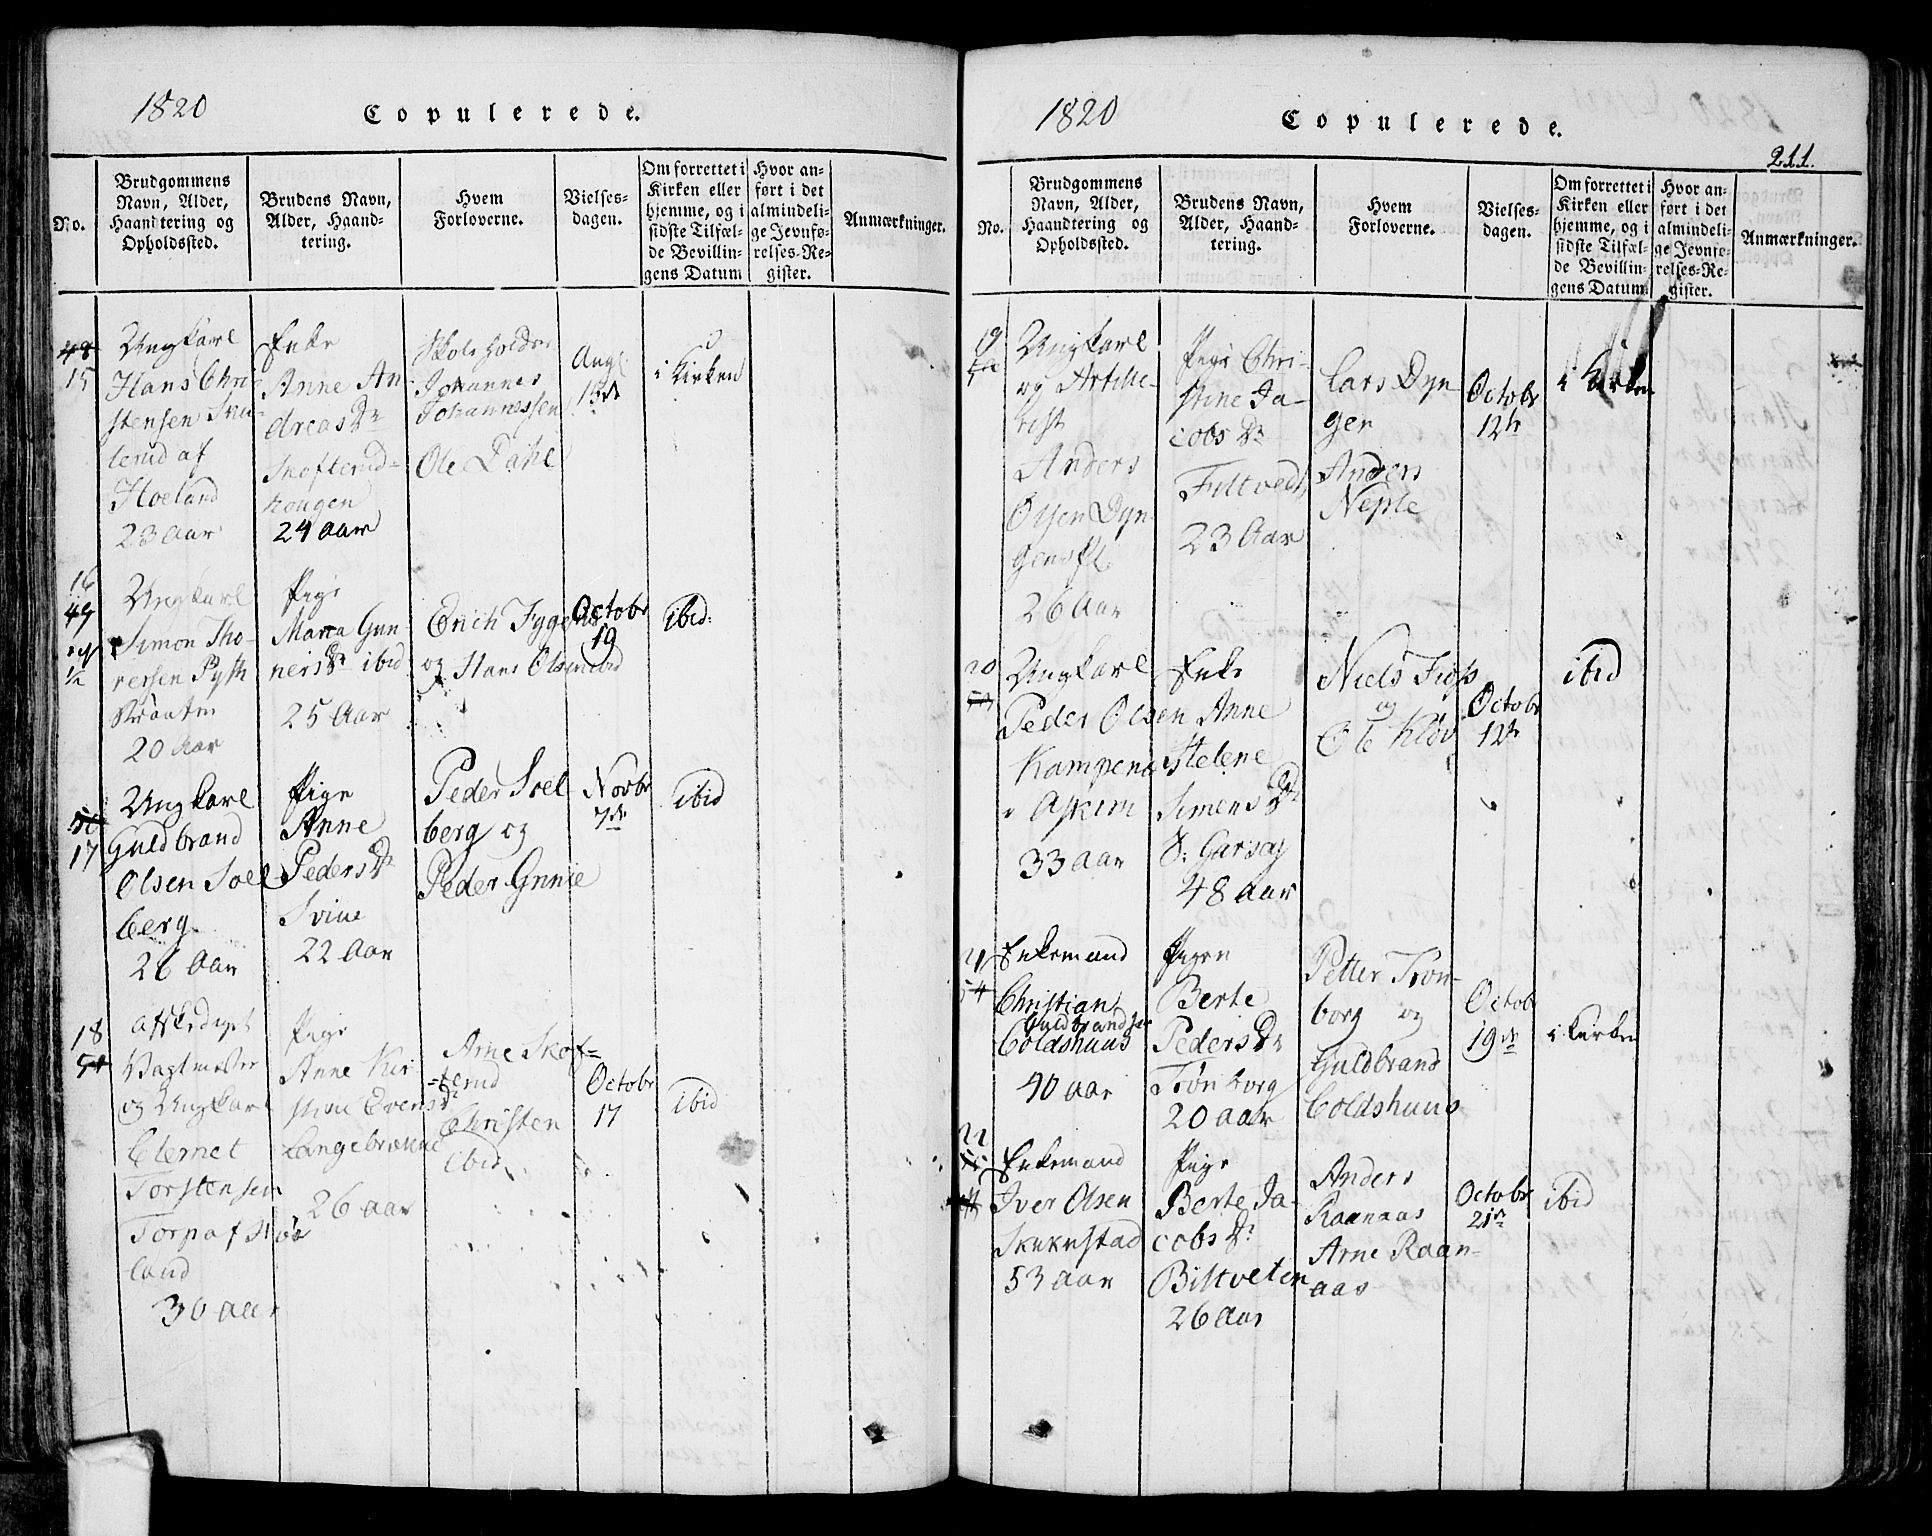 1820
Copulerede.
No.
Brudgommens
Navn, Alder,
Haandtering og
Opholdssted.
Brudens Navn,
Alder, Haand-
tering.
Hvem
Forloverne.
Vielses-
dagen.
Om forrettet i
Kirken eller
hjemme, og i
sidste Tilfæl-
de Bevillin-
gens Datum
Hvor an-
ført i det
almindeli-
ge Jevnfø-
relses-Re-
gister.
Anmærkninger.
48
15
Ungkarl
Hans Chri-
stensen
lerud af
Hoeland
23 Aar
Enke
Anne An-
dreas Dr
Skofterud-
hougen
24 Aar
Skoleholder
Johannes
Johannessen
Ole Dahl
Augt
13de
i Kirken
16
49
Ungkarl
Simon Tho-
resen
20 Aar
Pige
Maria Gun-
ners Dr ibid
25 Aar
Erich
og Hans Olsen ibid
Octobr
19
ibid:
50
17
Ungkarl
Guldbrand
Olsen Soel
berg
26 Aar
Pige
Anne
Peders Dr
Svine
22 Aar
Peder Soel
berg og
Peder
Novbr
7de
ibid
18
51
Afskediget
Vagtmester
og Ungkarl
Torstensen
Torp af Høe
land
30 Aar
Pige
Anne Kir-
stine Evens Dr
Langebrække
26 aar
Arne Skof=
=terud
Christen
ibid
Octobr
17
ibid
1820
Copulerede.
211.
No.
Brudgommens
Navn, Alder,
Haandtering og
Opholdssted.
Brudens Navn,
Alder, Haand-
tering.
Hvem
Forloverne.
Vielses-
dagen.
Om forrettet i
Kirken eller
hjemme, og i
sidste Tilfæl-
de Bevillin-
gens Datum.
Hvor an-
ført i det
almindeli-
ge Jevnfø-
relses-Re-
gister.
Anmærkninger.
19
Ungkarl
og Artille-
rist
Anders
Olsen Dyn-
gen
26 Aar
Pige Chri-
stine Ja-
cobs Dr
Filtvedt
23 Aar
Lars Dyn
gen
Anders
Neple
Octobr
12te
i Kirken
20
Ungkarl
Peder Olsen
Kampenes
i Askim
33 Aar
Enke
Anne
Helene
Simens Dr
48 Aar
Niels
og
Ole
Octobr
12te
ibid
21
54
Enkemand
Christian
Guldbrandsen
Coldshuus
40 aar
Pigen
Berte
Peders Dr
Trønborg
20 aar
Petter Tron-
borg og
Guldbrand
Coldshuus
Octob
19de
i Kirken
22
Enkemand
Iver Olsen
53 aar
Pige
Berte Ja-
cobs Dr
Biltveten
26 Aar
Anders
Raanaas
Arne Raan-
aas
Octobr
21de
ibid